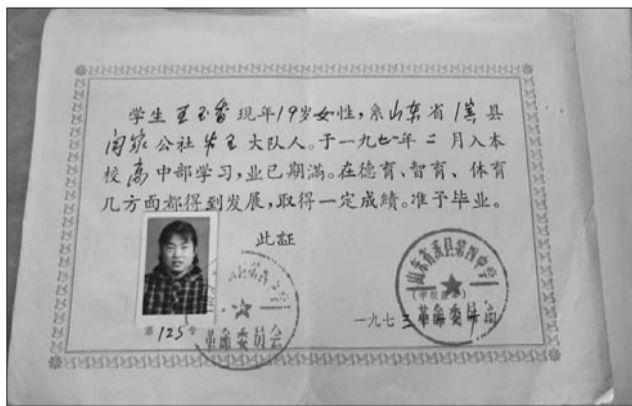 学生王玉香现年19岁女性,系山东省黄县
阎家公社牟王大队人。于一九七一年二月入本
校高中部学习,业已期满。在德育、智育、体育
几方面都得到发展,取得一定成绩。准予毕业。
此証
山东省黄县第四中学
(学校盖章)
第125号
革命委员会
一九七三
革命委员会